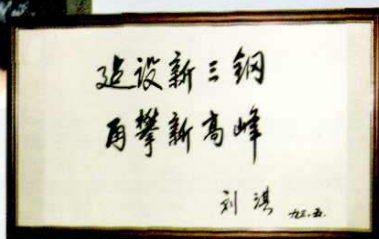 建设新三钢
再攀新高峰
刘淇 九三.五.